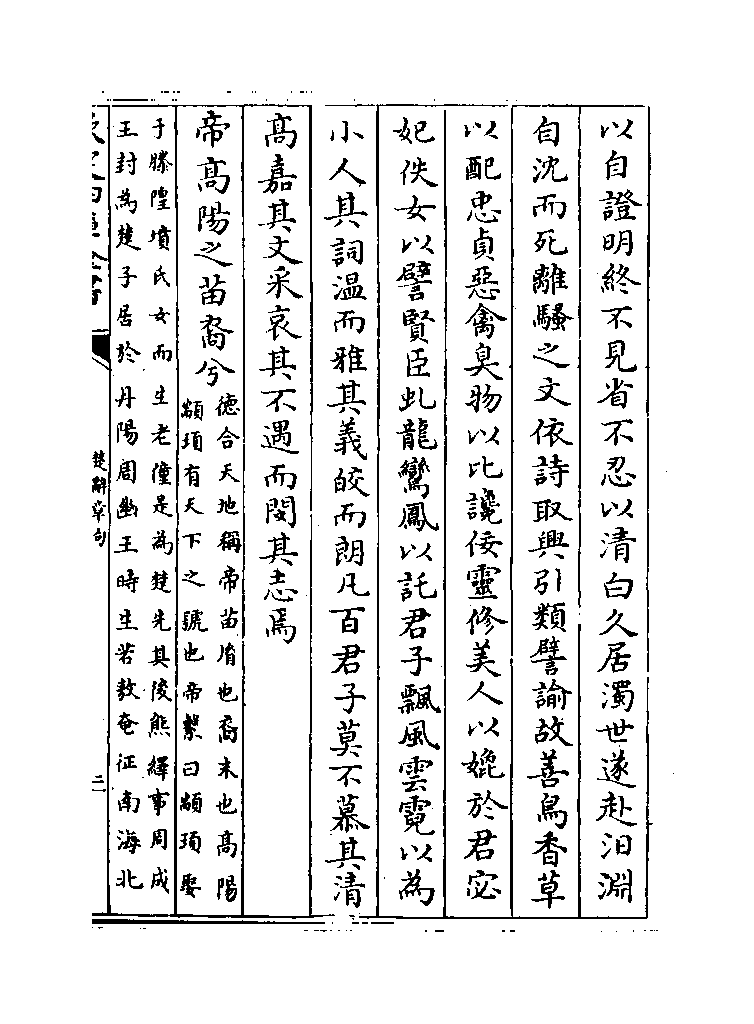 以自證明終不見省不忍以清白久居濁世遂赴汨淵
自沈而死離騷之文依詩取興引類譬諭故善鳥香草
以配忠貞惡禽臭物以比讒佞靈修美人以媲於君宓
妃佚女以譬賢臣虬龍鸞鳳以託君子飄風雲霓以為
小人其詞温而雅其義皎而朗凡百君子莫不慕其清
髙嘉其文采哀其不遇而閔其志焉
帝髙陽之苗裔兮
德合天地稱帝苗胤也裔末也髙陽
顓頊有天下之號也帝繫曰顓頊娶
于滕隍墳氏女而生老僮是為楚先其後熊繹事周成
王封為楚子居於丹陽周幽王時生若敖奄征南海北
楚辭章句
二